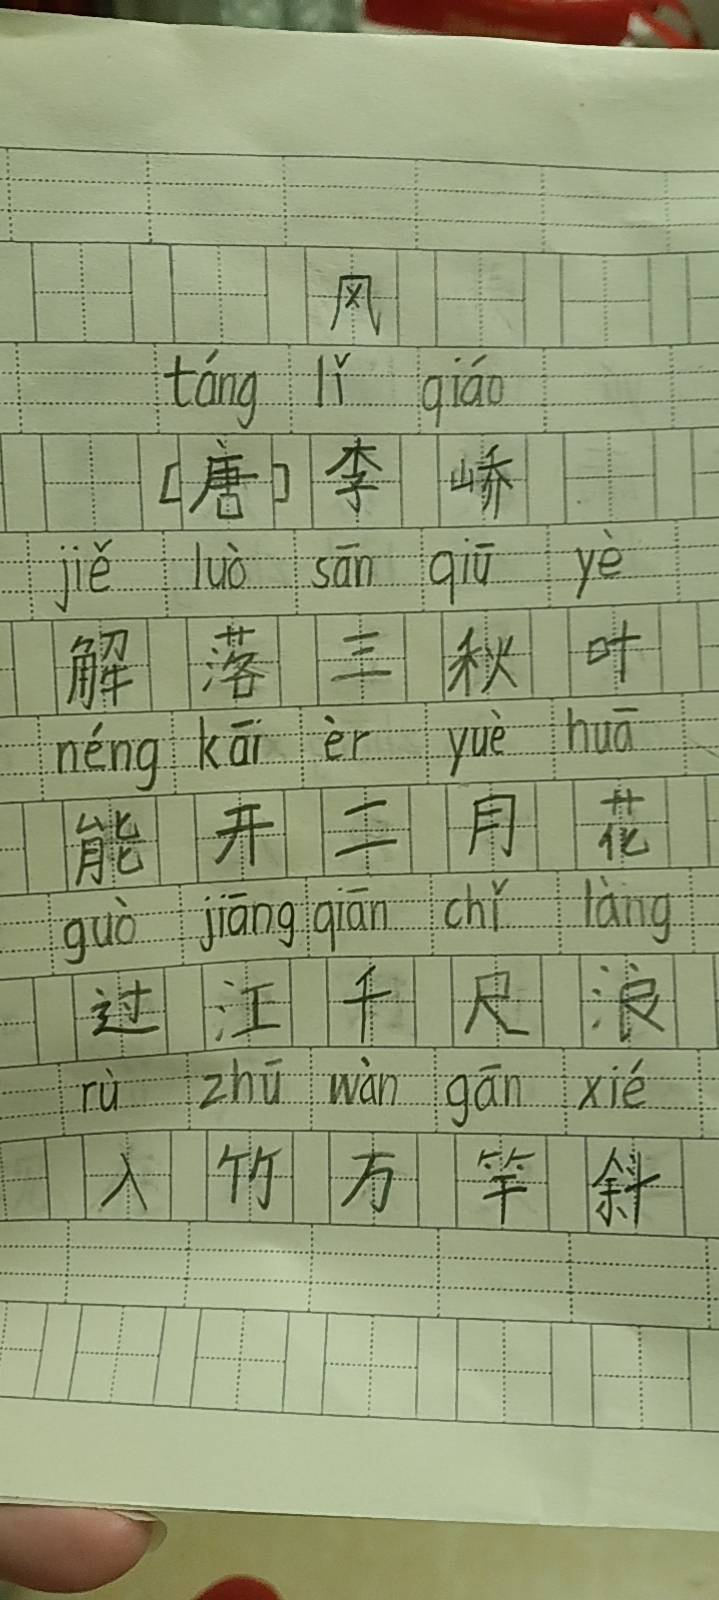 风
táng lǐ qiáo
[唐] 李 峤
jiě luò sān qiū yè
解 落 三 秋 叶
néng kāi èr yuè huā
能 开 二 月 花
guò jiāng qiān chǐ làng
过 江 千 尺 浪
rù zhū wàn gān xié
入 竹 万 竿 斜